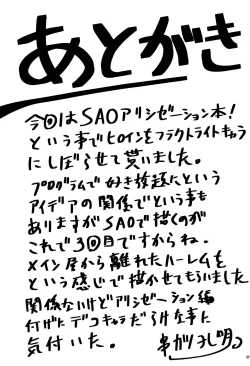 あとがき
今回はSAOアリシゼーション本!
という事でヒロインをフラクトライトキャラ
にしぼらせて貰いました。
プログラムで好き放題にという
アイデアの関係でという事も
ありますがSAOで描くのが
これで3回目ですからね。
メイン層から離れたハーレムを
という感じで描かせてもらいました
関係ないけどアリシゼーション編
だけにデコキャラだらけな事に
気付いた。
串がつし明